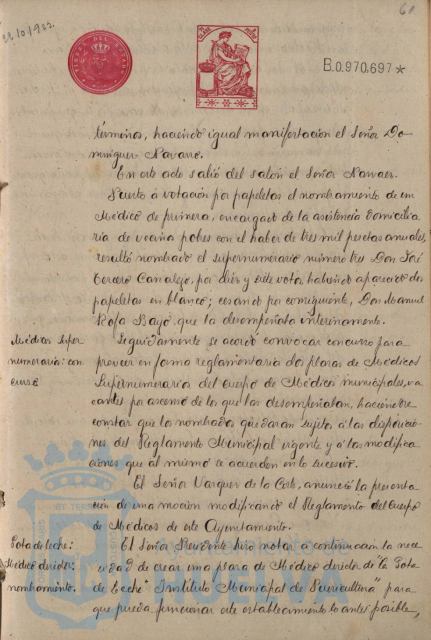 22/10/1922.
61
B.0.970.697*
términos, haciendo igual manifestación el Señor Do-
minguez Navarro.
En este acto salió del salón el Señor Narvaez.
Puesto á votación por papeletas el nombramiento de un
Médico de primera, encargado de la asistencia domicilia-
ria de vecinos pobres con el haber de tres mil pesetas anuales,
resultó nombrado el supernumerario número tres Don José
Tercero Canalejo, por diez y siete votos, habiendo aparecido dos
papeletas en blanco; cesando por consiguiente, Don Manuel
Rofa Bayó que la desempeñaba interinamente.
Médicos Super
numerarios: con
curso
Seguidamente se acordó convocar concurso para
proveer en forma reglamentaria dos plazas de Médicos
Supernumerarios del cuerpo de Médicos municipales, va-
cantes por ascenso de los que las desempeñaban, haciendose
constar que los nombrados quedaran sujetos á las disposicio-
nes del Reglamento Municipal vigente y á las modifica-
ciones que al mismo se acuerden en lo sucesivo.
El Señor Vazquez de la Corte, anunció la presenta-
ción de una moción modificando el Reglamento del Cuerpo
de Médicos de este Ayuntamiento.
Gota de leche:
Médico director:
nombramiento.
El Señor Presidente hizo notar á continuación la nece-
sidad de crear una plaza de Médico director de la Gota
de Leche "Instituto Municipal de Puericultura" para
que pueda funcionar este establecimiento lo antes posible,
AYUNTAMIENTO DE
HUELVA